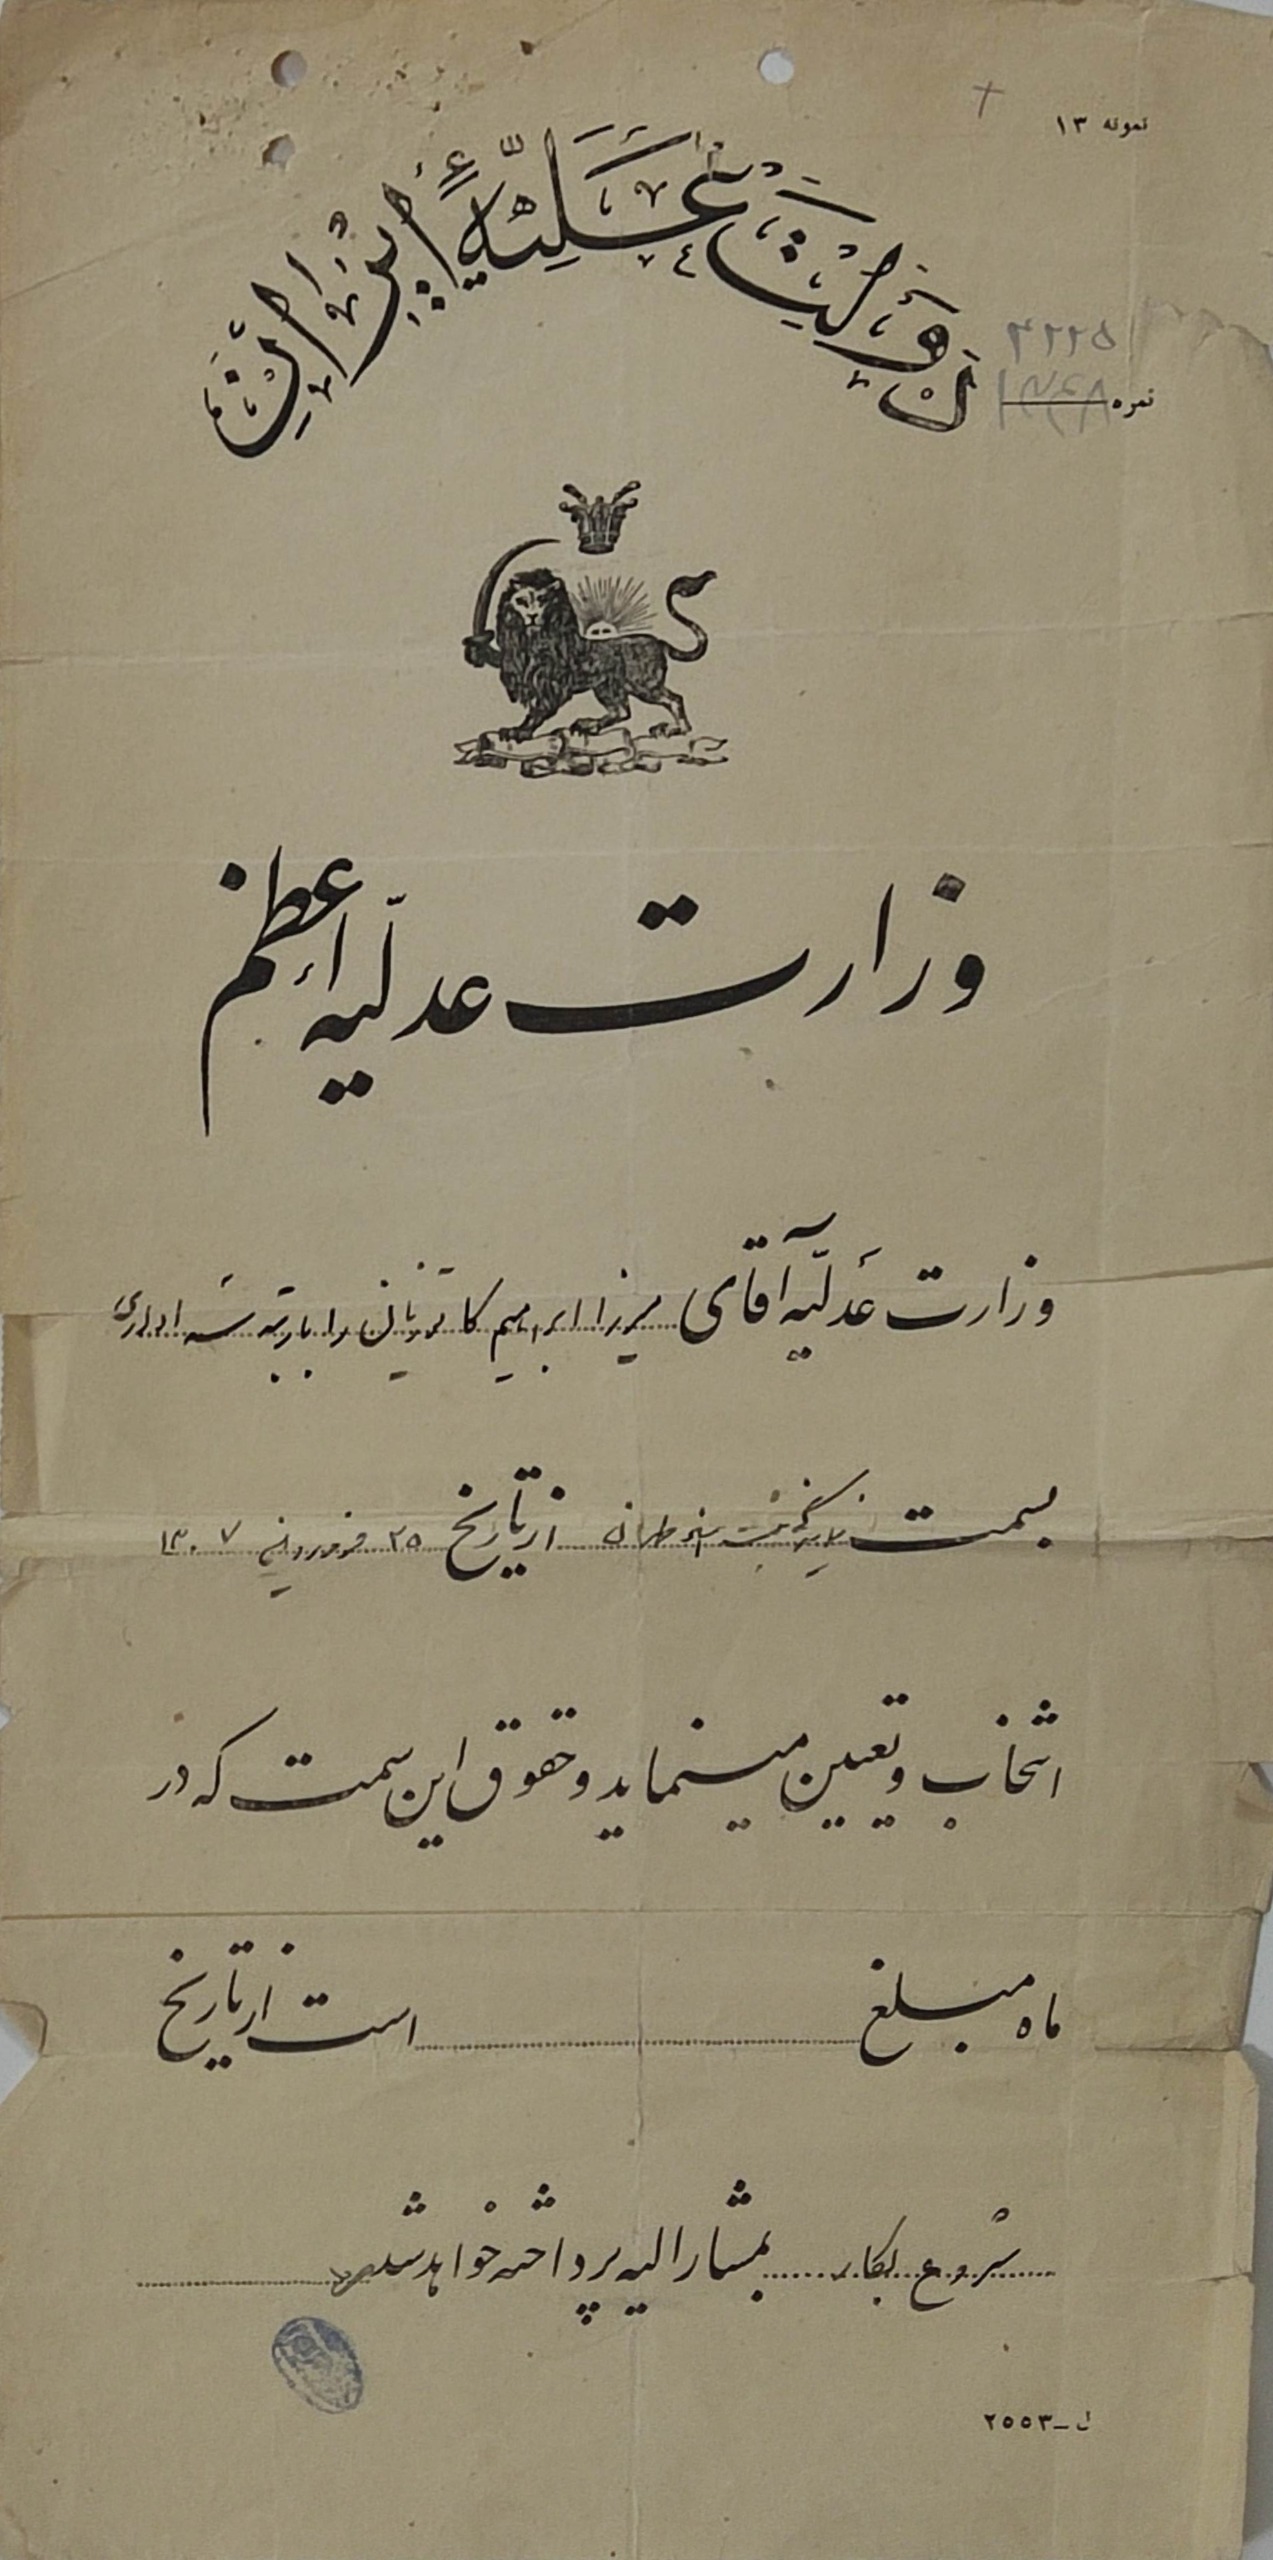 نمونه ۱۳
دولت علیّهٔ ایران
۵۲۲۳
نمره
وزارت عدلیّه اعظم
وزارت عدلیّه آقای میرزا ابراهیم را بارتبه سه اداری
بسمت طهران از تاریخ ۲۵ فروردین ۱۳۰۷
انتخاب و تعیین مینماید و حقوق این سمت که در
ماه مبلغ است از تاریخ
شروع بکار بمشارالیه پرداخته خواهد شد
ل-۲۵۵۳